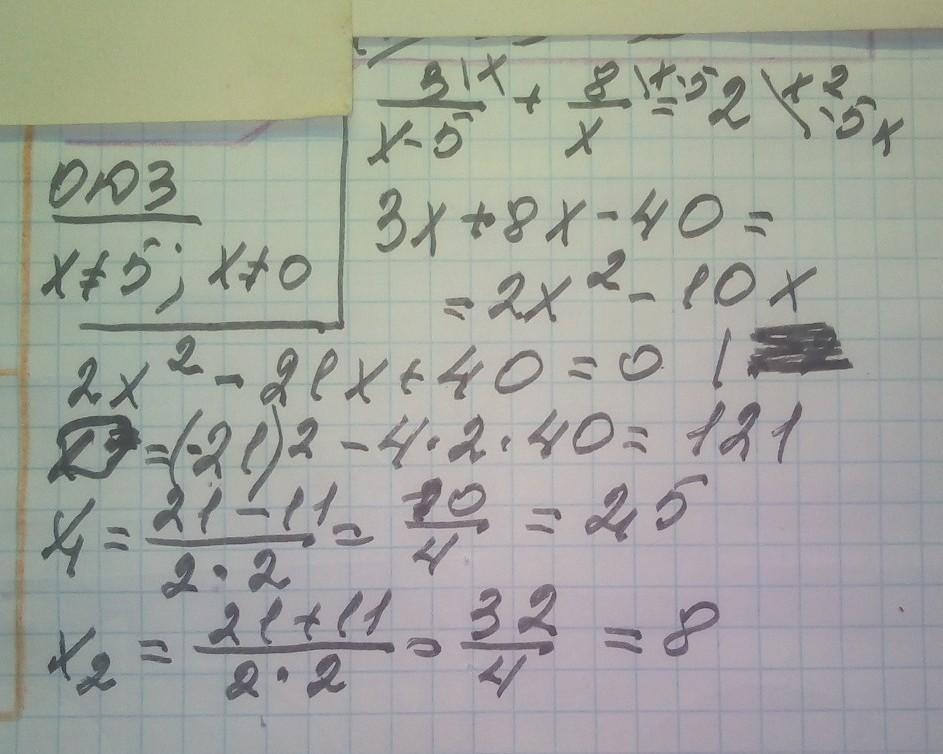 3\x / x-5 + 8\x-5 / x = 2\x²-5x
ОДЗ
x≠5; x≠0
3x+8x-40=
=2x²-10x
2x²-21x+40=0 |
=(-21)²-4·2·40=121
x₁=(21-11)/(2·2)=10/4=2,5
x₂=(21+11)/(2·2)=32/4=8